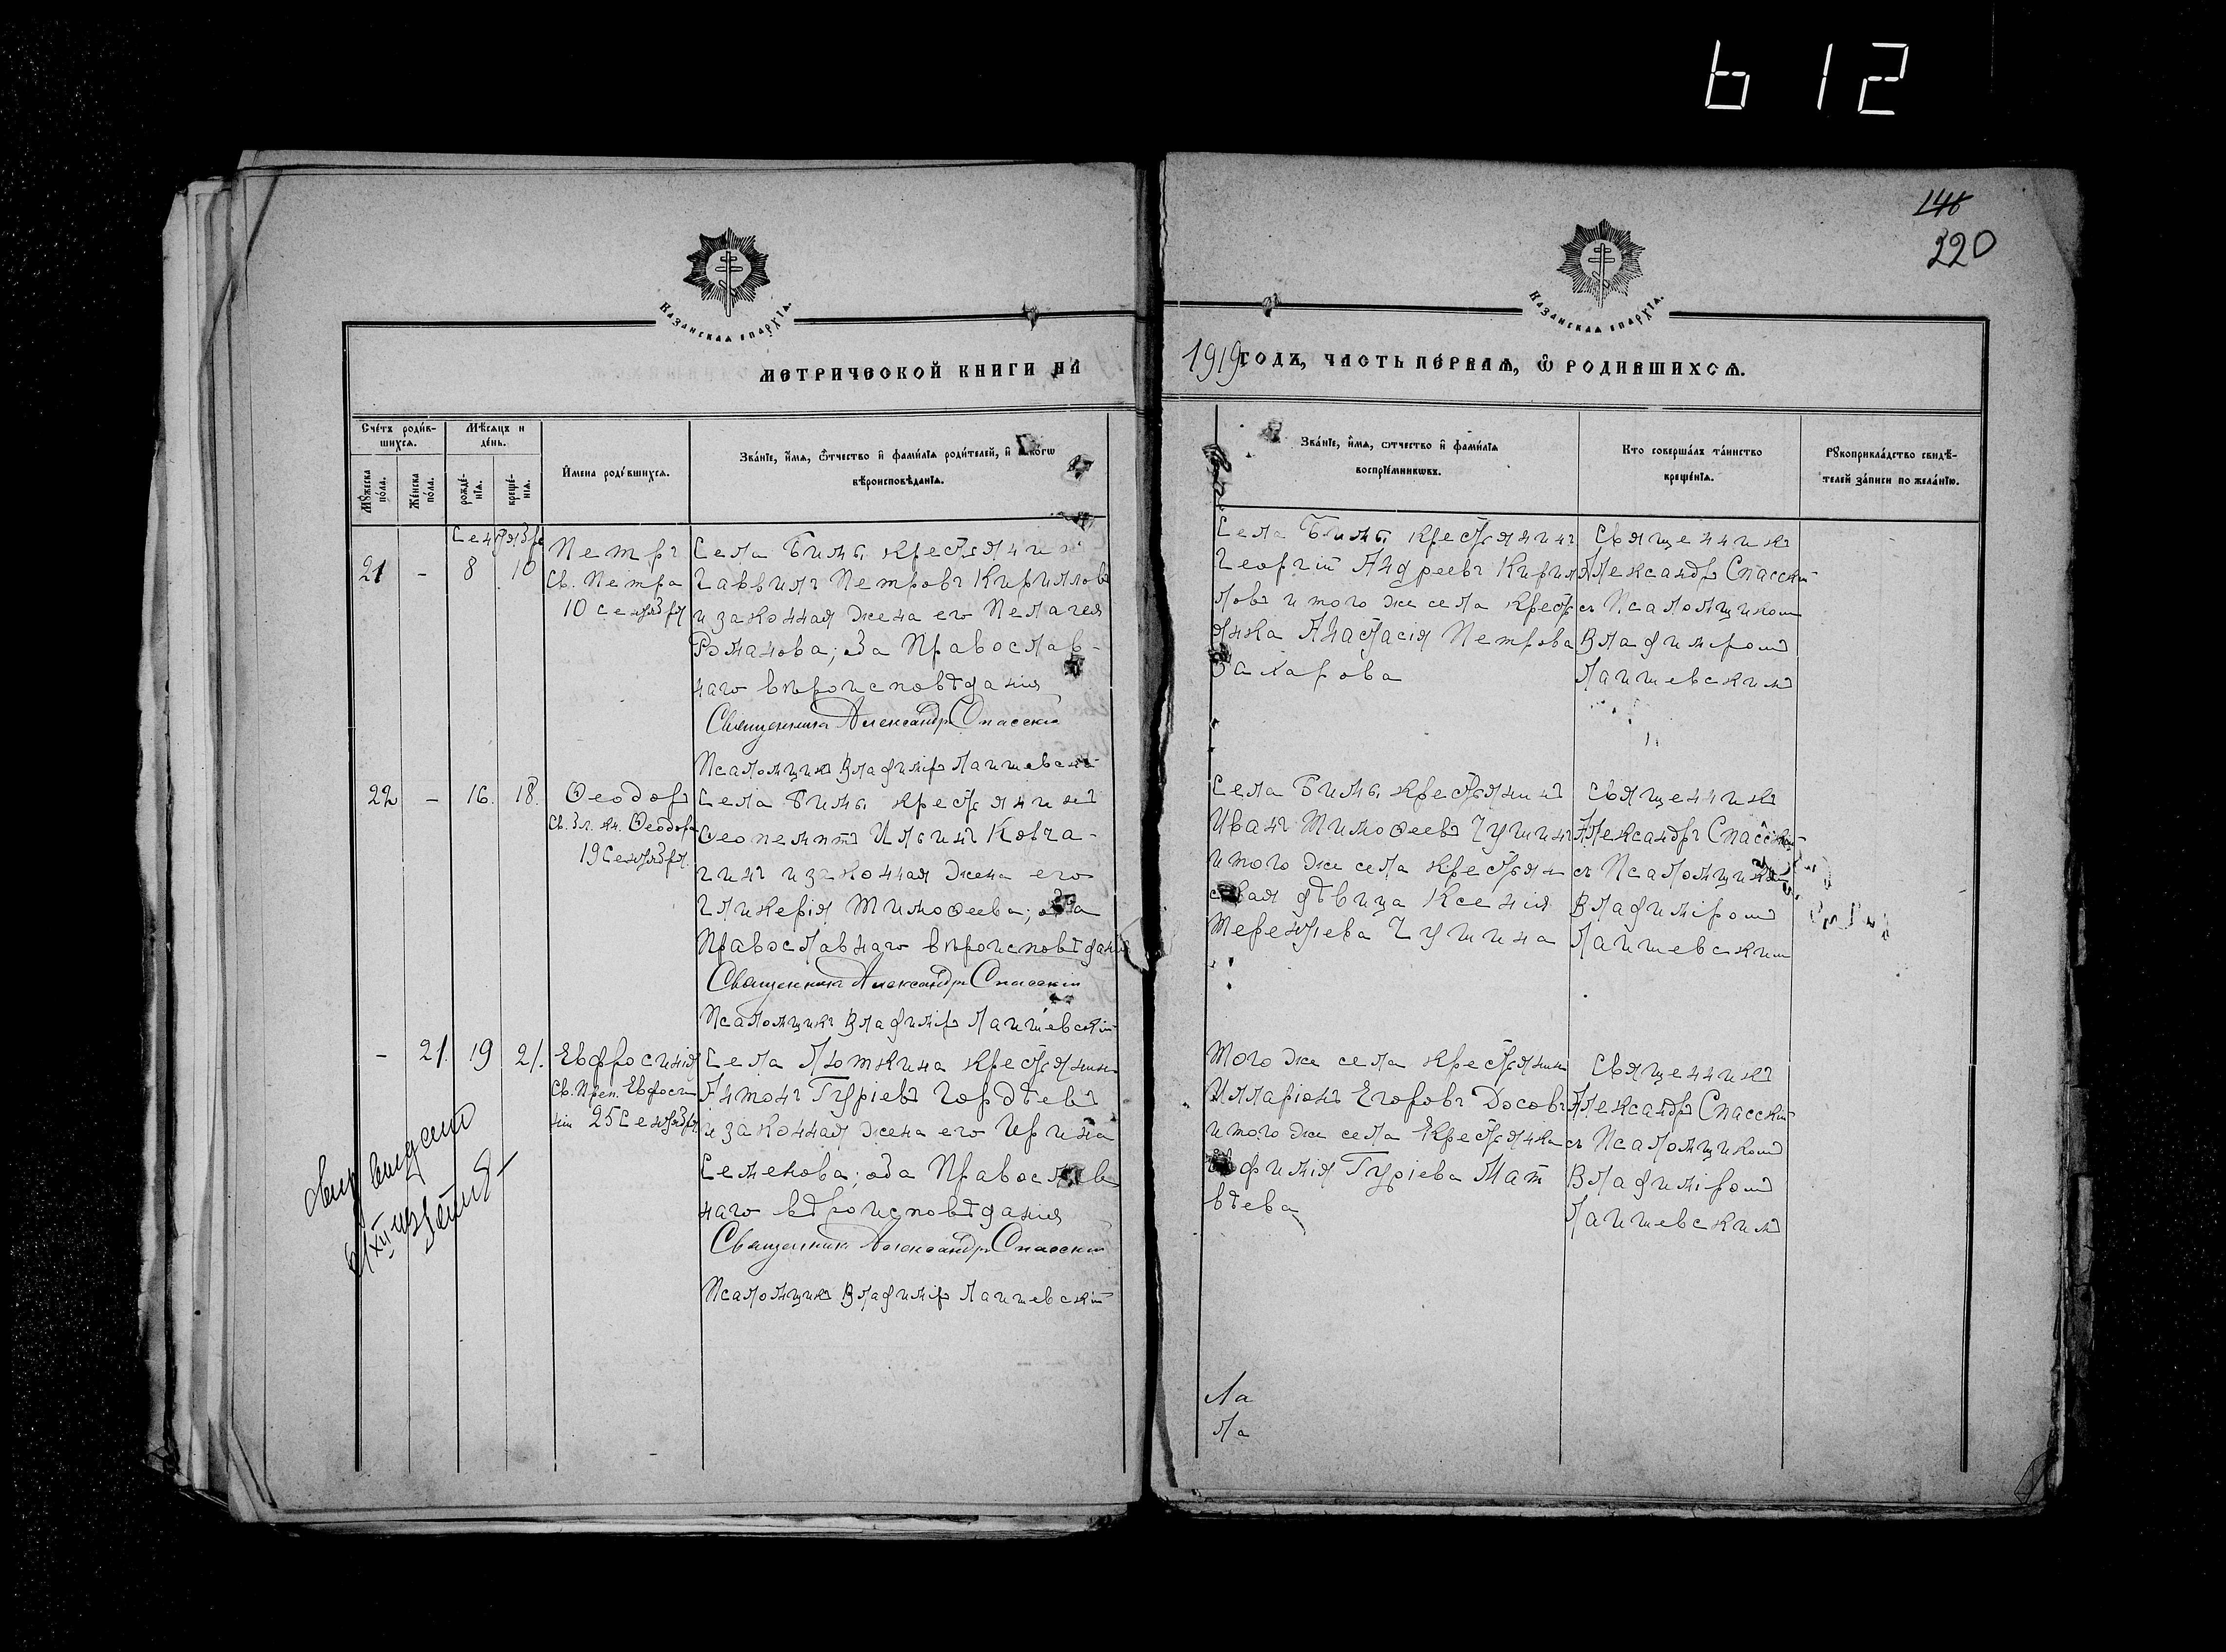 612
146
220
КАЗАНСКАЯ ЕПАРХІЯ.
КАЗАНСКАЯ ЕПАРХІЯ.
МЕТРИЧЕСКОЙ КНИГИ НА 1919 ГОДЪ, ЧАСТЬ ПЕРВАЯ, Ѿ РОДИВШИХСЯ.
Сче́тъ роди́в-
шихся.
Мꙋ́жеска по́ла.
Же́нска по́ла.
Мѣ́сяцъ и
де́нь.
рожде́-
нія.
креще́-
нія.
И҆мена роди́вшихся.
Зва́ніе, и҆́мя, ѻ҆́тчество и҆ фами́лія роди́телей, и҆ како́гѡ
вѣроисповѣ́данія.
Зва́ніе, и҆́мя, ѻтчество и҆ фами́лія
воспріе́мникѡвъ.
Кто соверша́лъ та́инство
креще́нія.
Рꙋкоприкла́дство свидѣ́-
телей за́писи по жела́нію.
Сентября
21 - 8 10
Петръ
Св. Петра
10 сентября
Села Бимы крестьянинъ
Гавріилъ Петровъ Кирилловъ
и законная жена его Пелагея
Романова; оба Православ-
наго вѣроисповѣданія
Священникъ Александръ Спасскій
Псаломщикъ Владиміръ Лаишевскій
Села Бимы крестьянинъ
Георгій Андреевъ Кирил
ловъ и того же села кресть
янка Анастасія Петрова
Захарова
Священникъ
Александръ Спасскій
съ Псаломщикомъ
Владиміромъ
Лаишевскимъ
22 - 16. 18.
Ѳеодоръ
Св. Бл. кн. Ѳеодора
19 Сентября.
Села Бимы крестьянинъ
Ѳеопемптъ Ильинъ Ковча-
гинъ и законная жена его
Гликерія Тимоѳеева; оба
Православнаго вѣроисповѣданія
Священникъ Александръ Спасскій
Псаломщикъ Владиміръ Лаишевскій
Села Бимы крестьянинъ
Иванъ Тимоѳеевъ Чушинъ
и того же села крестьян
ская дѣвица Ксенія
Терентьева Чушина
Священникъ
Александръ Спасскій
съ Псаломщикомъ
Владиміромъ
Лаишевскимъ
- 21. 19 21.
Евфросинія
Св. Преп. Евфроси
ніи 25 Сентября
Села Люткина крестьянинъ
Антонъ Гуріевъ Гордѣевъ
и законная жена его Ирина
Семенова; оба Православ
наго вѣроисповѣданія
Священникъ Александръ Спасскій
Псаломщикъ Владиміръ Лаишевскій
Того же села крестьянинъ
Илларіонъ Егоровъ Досовъ
и того же села крестьянка
Евфимія Гуріева Мат
вѣева
Священникъ
Александръ Спасскій
съ Псаломщикомъ
Владиміромъ
Лаишевскимъ
Ла
Ла